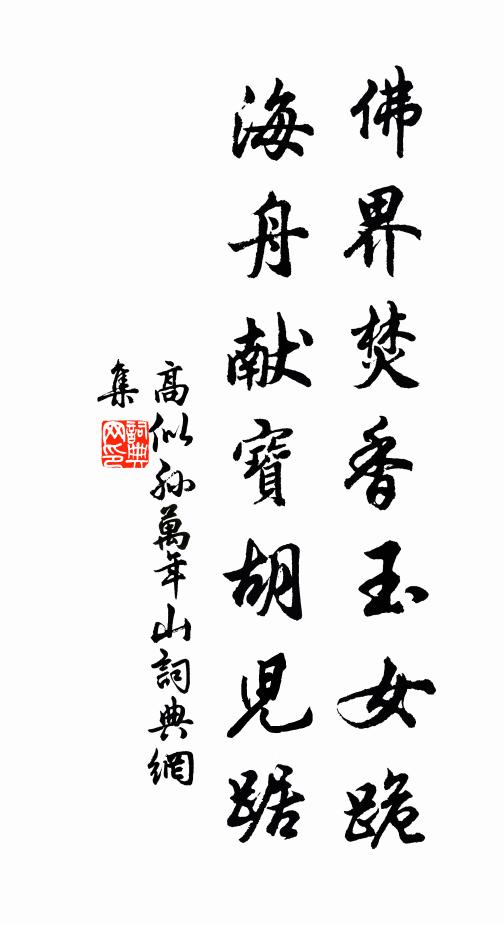 佛界焚香玉女跪
海舟献寶胡児踞
高似孙萬年山詞典網
集
詞典网印